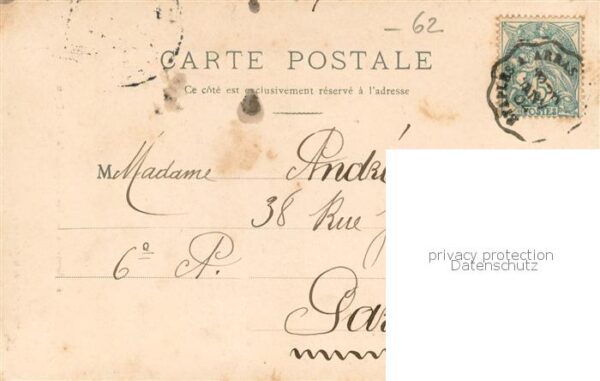 62
CARTE POSTALE
Ce côté est exclusivement réservé à l'adresse
ETAPLES A ARRAS
POSTES
M Madame André
38 Rue
6e A.
privacy protection
Datenschutz